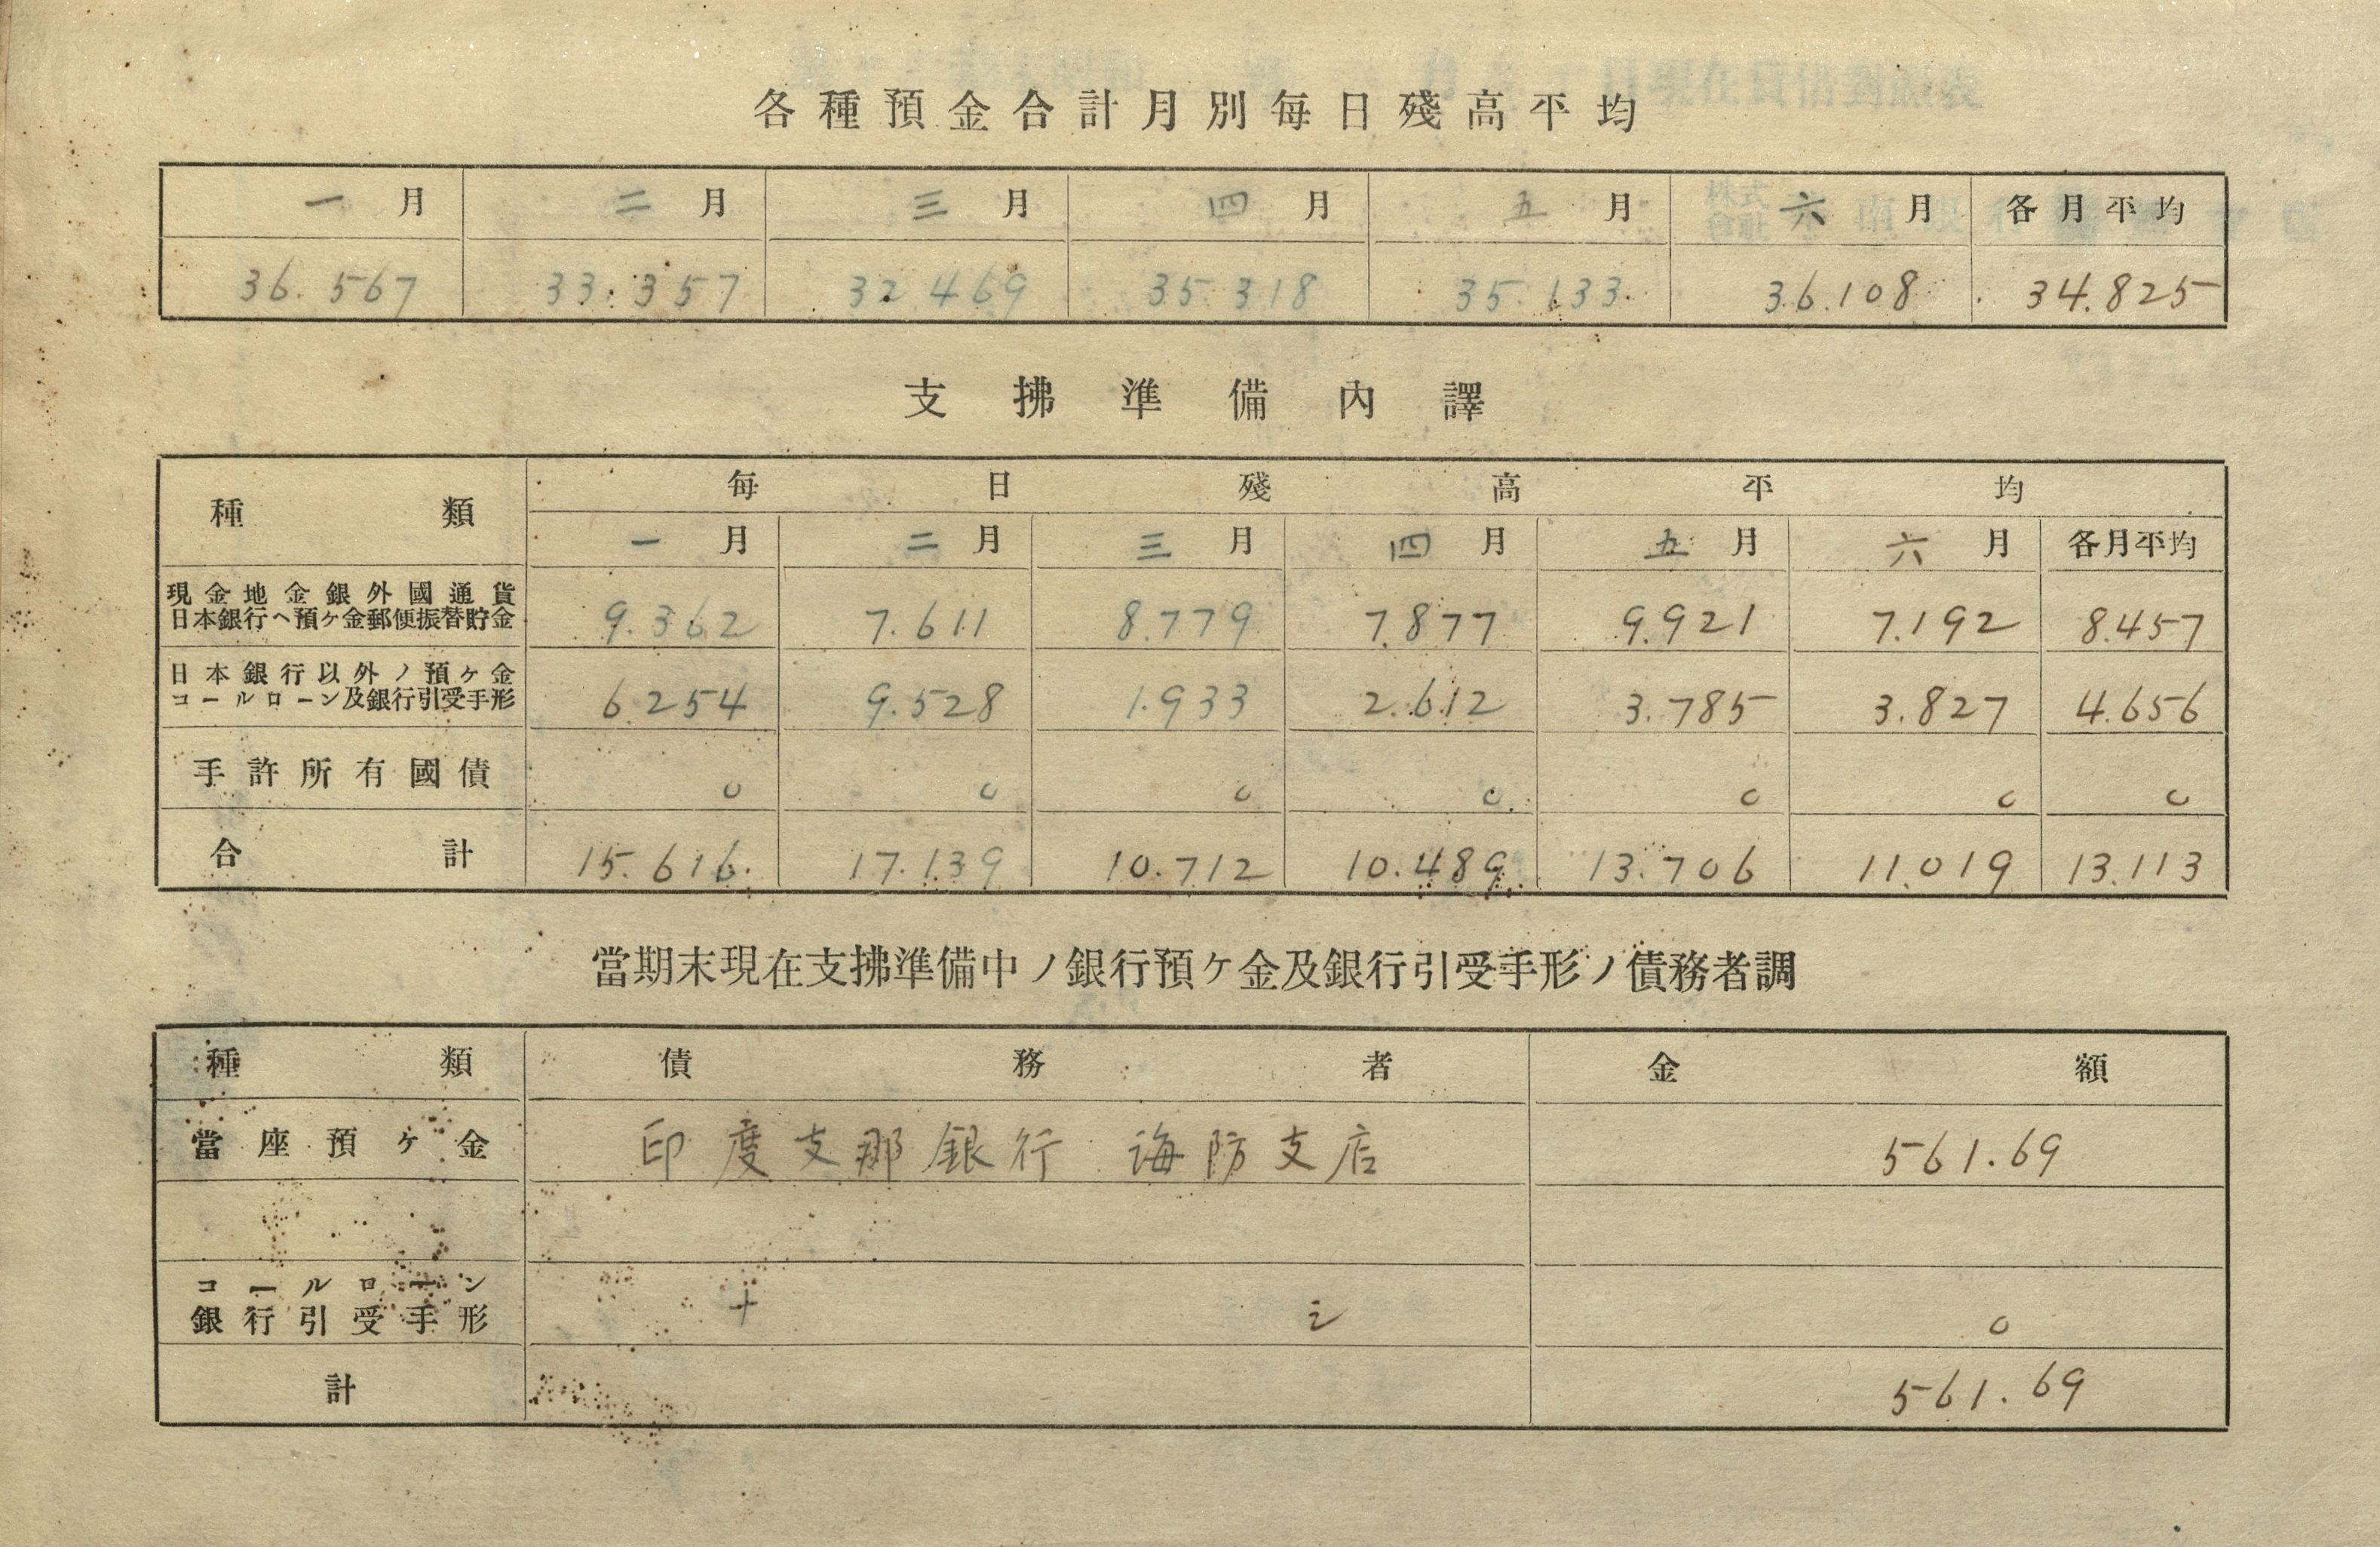 各種預金合計月別每日殘高平均
一月 二月 三月 四月 五月 六月 各月平均
36.567 33.357 32.469 35.318 35.133 36.108 34.825
支拂準備內譯
種類 每日殘高平均
一月 二月 三月 四月 五月 六月 各月平均
現金地金銀外國通貨
日本銀行ヘ預ヶ金郵便振替貯金 9.362 7.611 8.779 7.877 9.921 7.192 8.457
日本銀行以外ノ預ヶ金
コールローン及銀行引受手形 6.254 9.528 1.933 2.612 3.785 3.827 4.656
手許所有國債 0 0 0 0 0 0 0
合計 15.616 17.139 10.712 10.489 13.706 11.019 13.113
當期末現在支拂準備中ノ銀行預ヶ金及銀行引受手形ノ債務者調
種類 債務者 金額
當座預ヶ金 印度支那銀行 海防支店 561.69
コールローン
銀行引受手形 ナシ 0
計 561.69